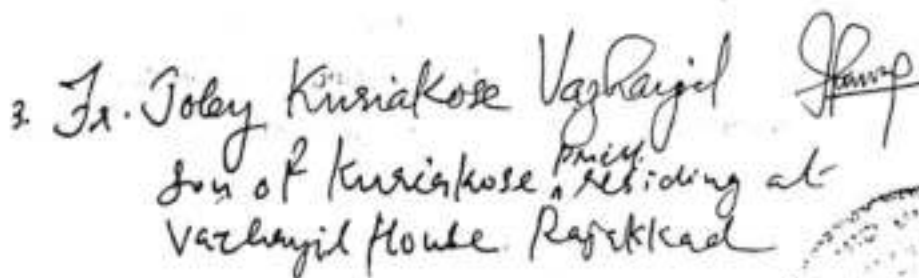 3. Fr. Joby Kuriakose Vazhayil
son of Kuriakose residing at
Vazhayil House Rajakkad